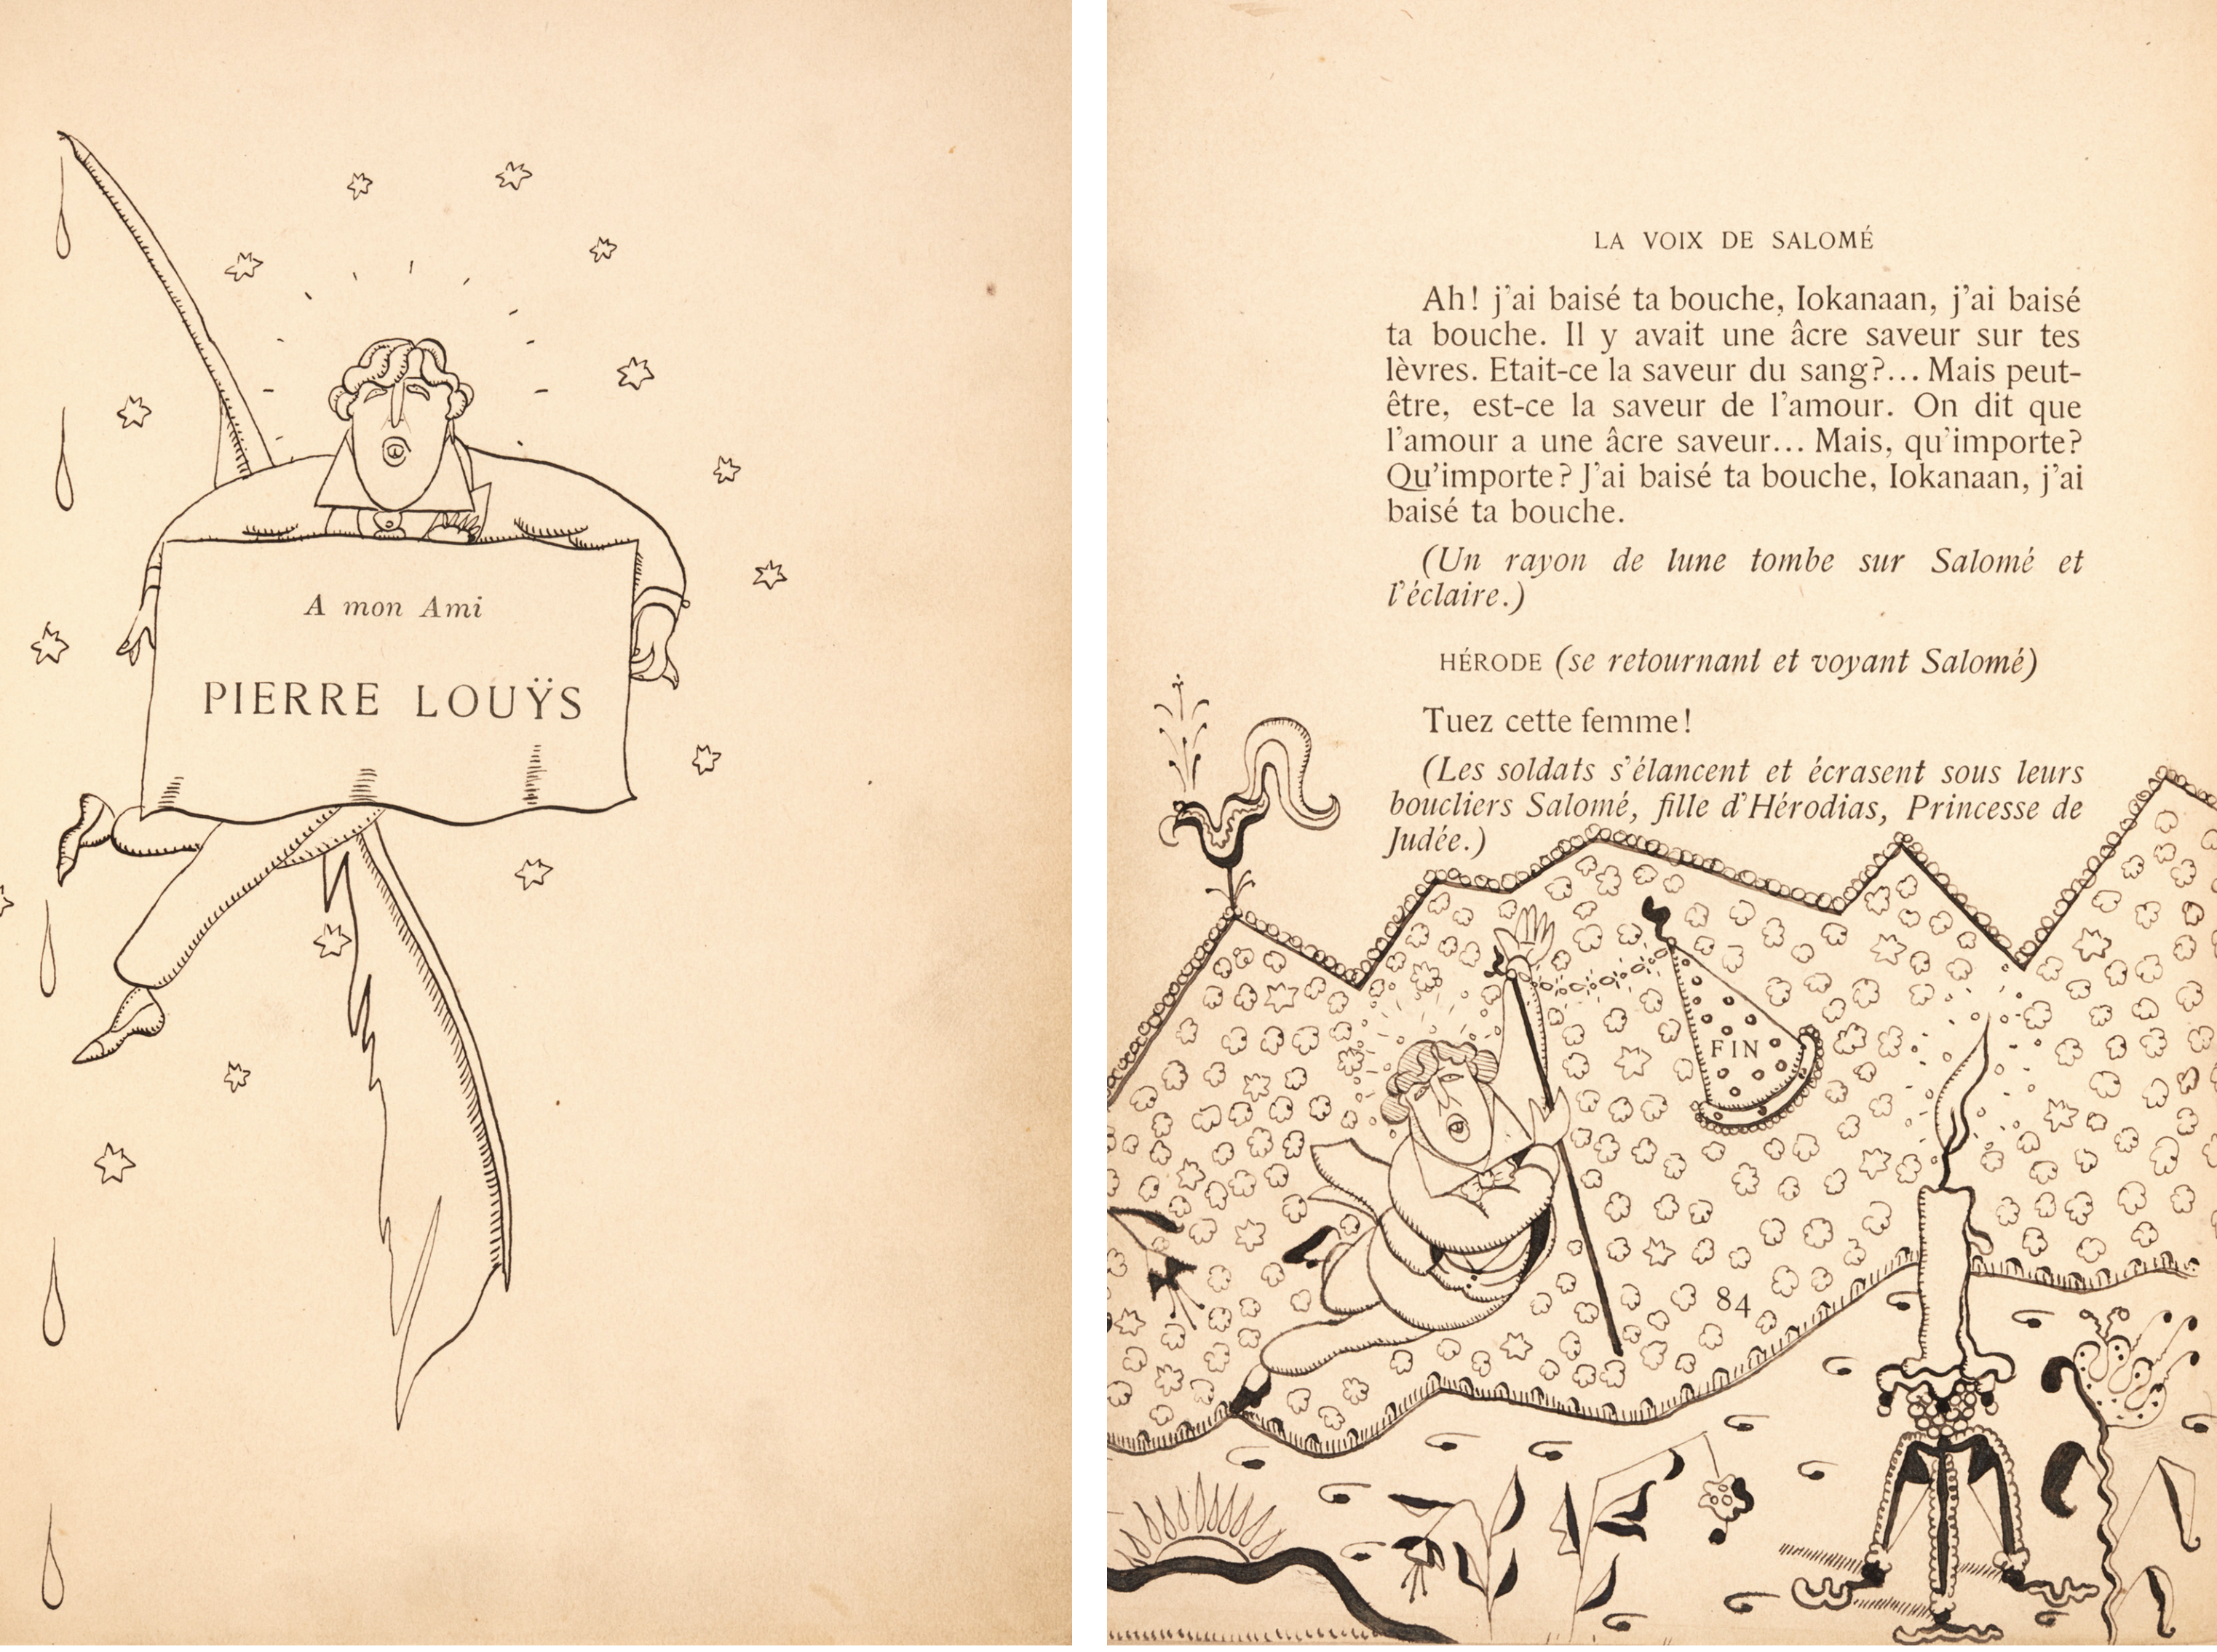 A mon Ami
PIERRE LOUŸS
LA VOIX DE SALOMÉ
Ah! j'ai baisé ta bouche, Iokanaan, j'ai baisé
ta bouche. Il y avait une âcre saveur sur tes
lèvres. Etait-ce la saveur du sang?... Mais peut-
être, est-ce la saveur de l'amour. On dit que
l'amour a une âcre saveur... Mais, qu'importe?
Qu'importe? J'ai baisé ta bouche, Iokanaan, j'ai
baisé ta bouche.
(Un rayon de lune tombe sur Salomé et
l'éclaire.)
HÉRODE (se retournant et voyant Salomé)
Tuez cette femme!
(Les soldats s'élancent et écrasent sous leurs
boucliers Salomé, fille d'Hérodias, Princesse de
Judée.)
FIN
84